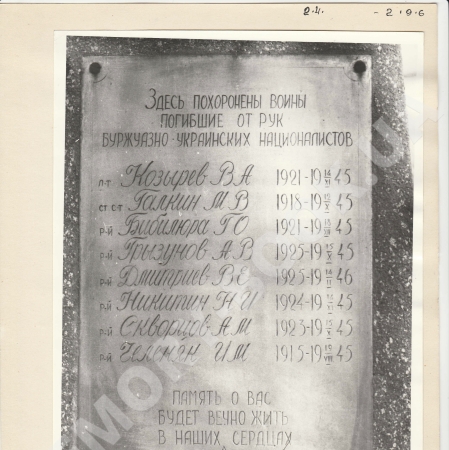 2.4. - 2.9.6
Здесь похоронены воины
погибшие от рук
буржуазно-украинских националистов
л-т Козырев В А 1921-19 45
ст с-т Галкин М В 1918-19 45
р-й Бибилюра Г О 1921-19 45
р-й Грызунов А В 1925-19 45
р-й Дмитриев В Е 1925-19 46
р-й Никитин Н И 1924-19 45
р-й Скворцов А М 1923-19 45
р-й И М 1915-19 45
Память о вас
будет вечно жить
в наших сердцах